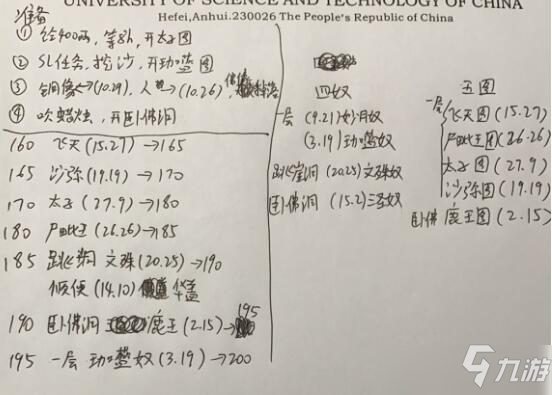 UNIVERSITY OF SCIENCE AND TECHNOLOGY OF CHINA
Hefei,Anhui.230026 The People's Republic of China
准备
① 给400两,等8h,开太子图
② SL任务,挖沙,开劫盏图
③ 铜像↔(10.29),人(10.26)
④ 吹蜡烛,开卧佛洞
160 飞天(15.27)→165
165 沙弥(19.19)→170
170 太子(27.9)→180
180 尸毗王(26.26)→185
185 跳崖洞 文殊(20.25)→190
倾便(14.10) 华盖
190 卧佛洞 鹿王(2.15)→195
195 一层 劫盏奴(3.19)→200
四奴
一层 (9.21)妙月奴
(3.19)劫盏奴
跳崖洞(20.25)文殊奴
卧佛洞(15.2)三圣奴
五图
一层 飞天图(15.27)
尸毗王图(26.26)
太子图(27.9)
沙弥图(19.19)
卧佛 鹿王图(2.15)
九游